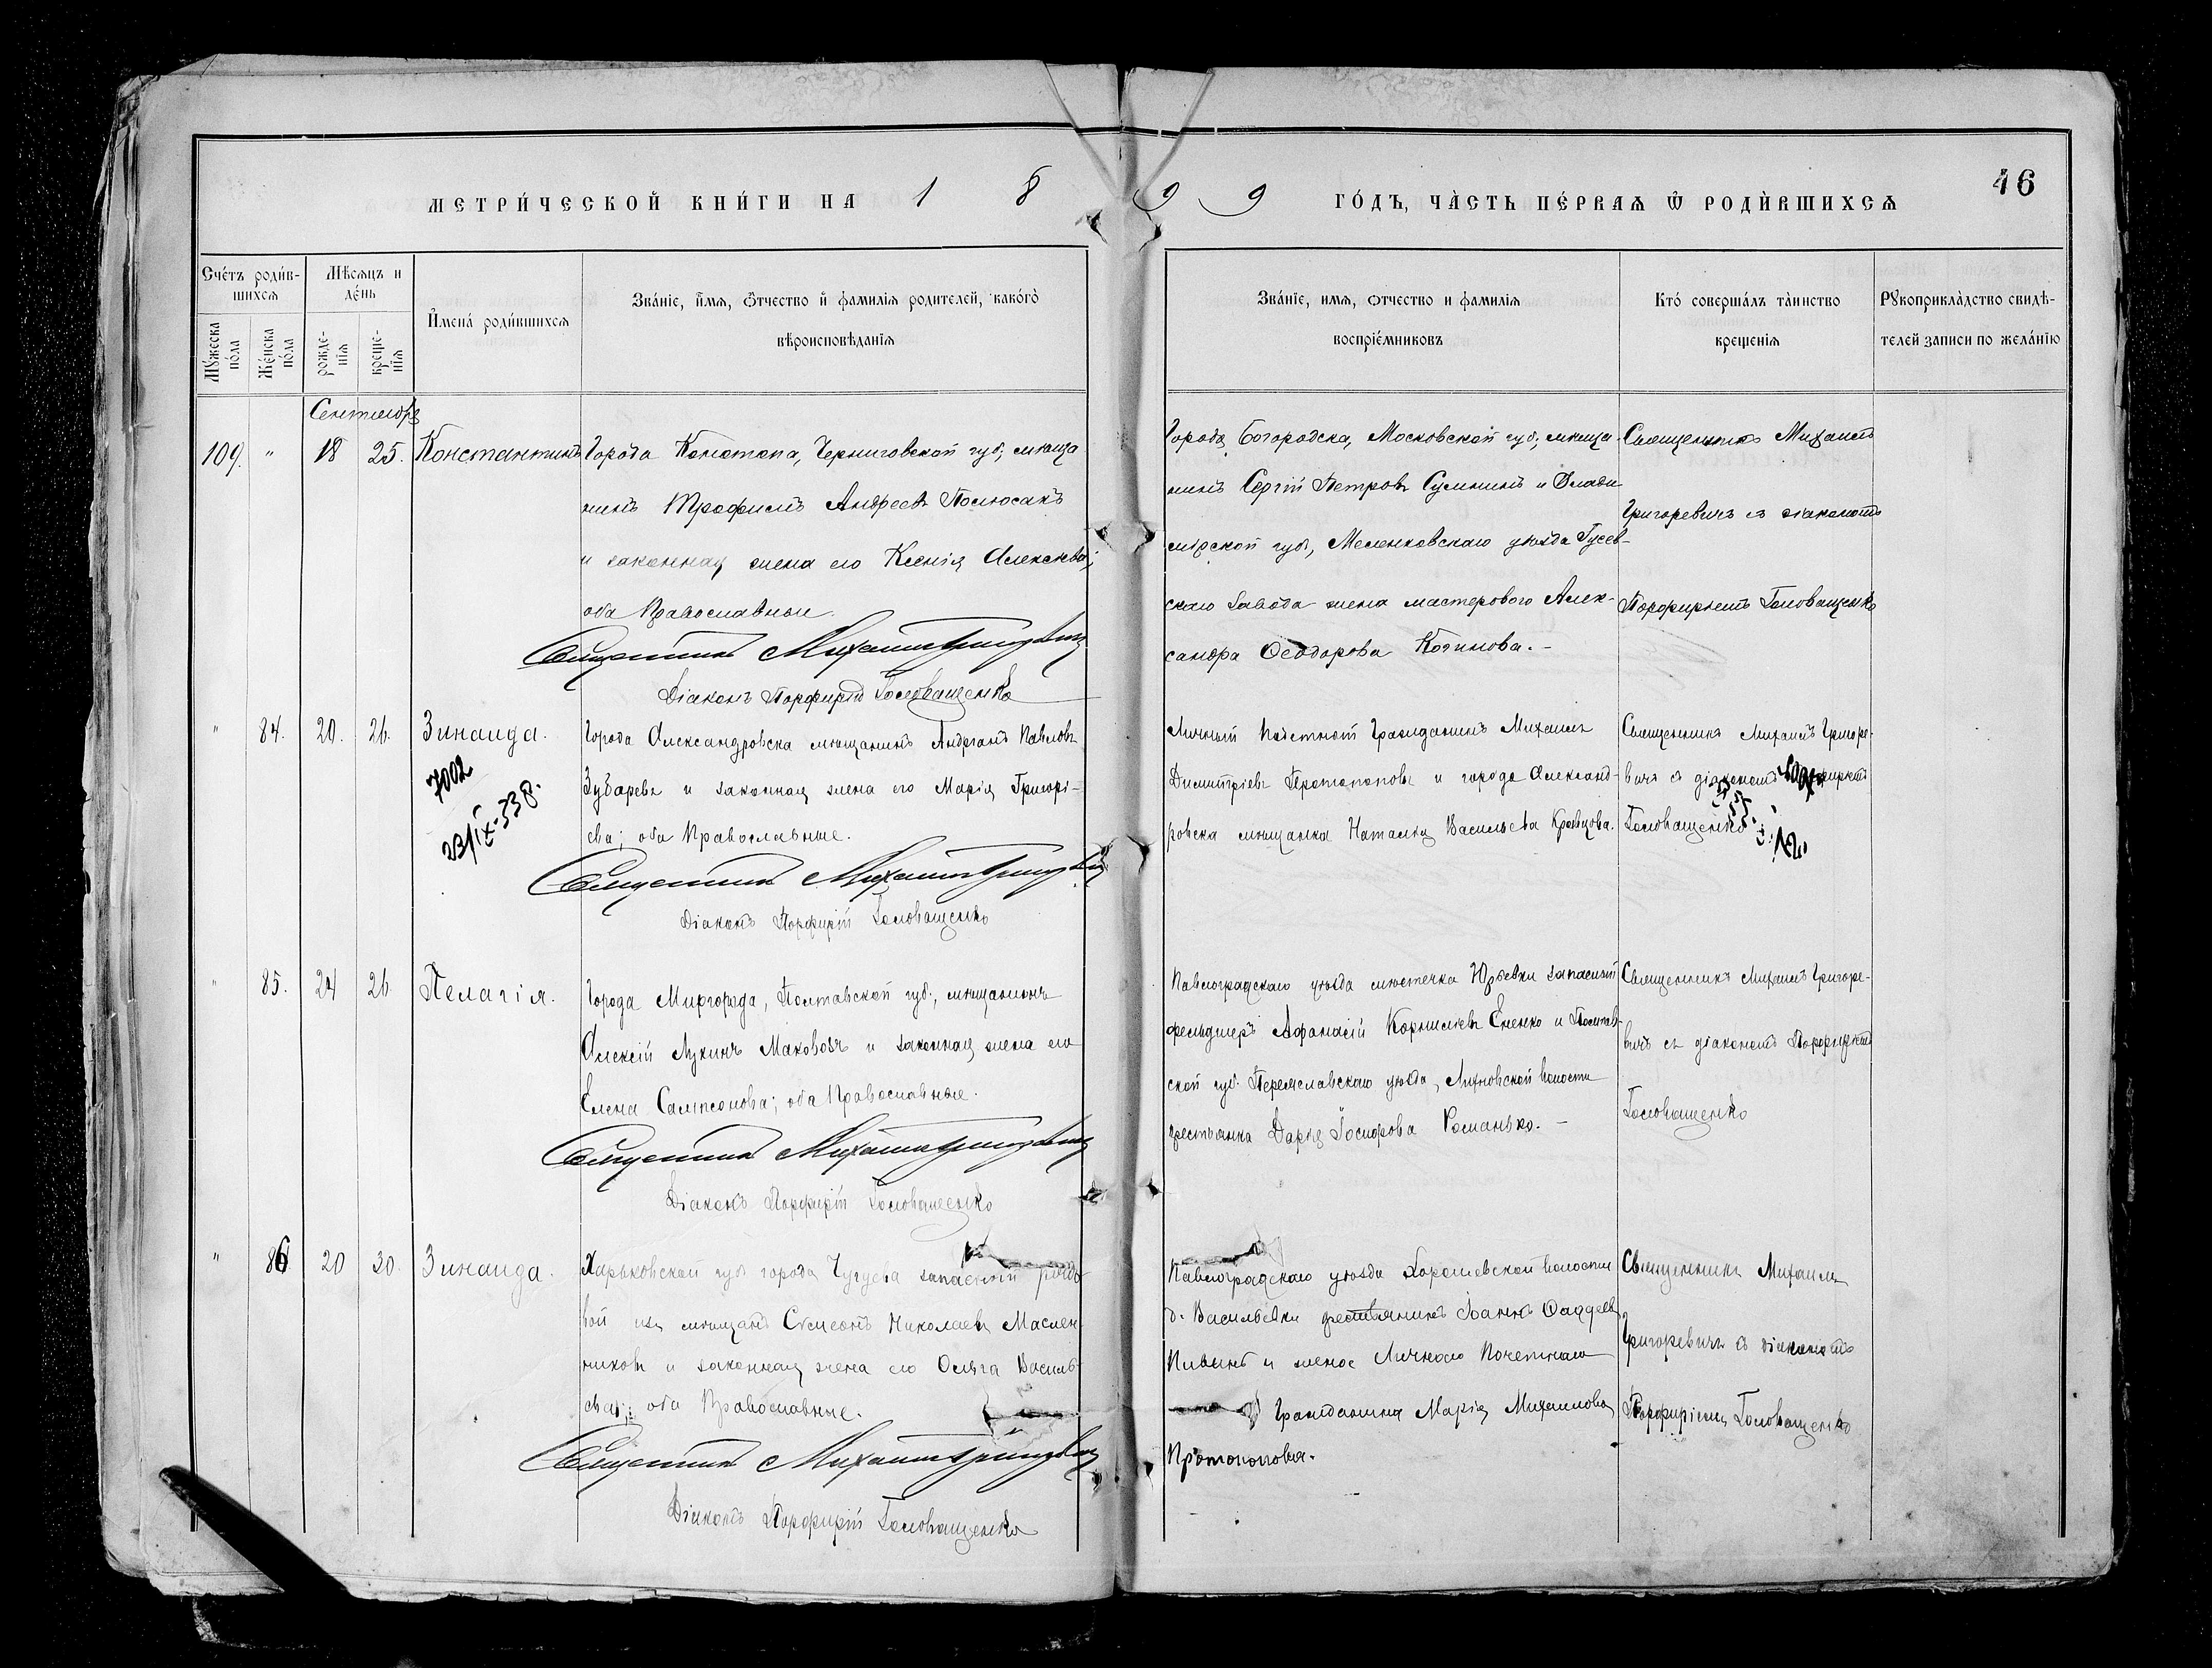 МЕТРИ́ЧЕСКОЙ КНИ́ГИ НА 1899 ГО́ДЪ, ЧА̀СТЬ ПЕ́РВАѦ Ѿ РОДЍВШИХСѦ
46
Сче́тъ роди́в-
шихсѧ
Мѣсѧцъ и
де́нь
Мꙋ́жеска
по́ла
Же́нска
по́ла
рожде-
нїѧ
креще-
нїѧ
И҆мена́ роди́вшихсѧ
Зва́нїе, и҆́мѧ, ѻ҆́тчество и҆ фамилїѧ родителей, како́гѡ
вѣроисповѣданїѧ
Зва́нїе, имѧ, ѻтчество и фамилїѧ
воспрїе́мниковъ
Кто́ соверша́лъ та̀инство
крещенїѧ
Рꙋкоприкла̀дство свидѣ-
телей записи по жела́нїю
Сентября
109. " 18 25. Константинъ
Города Конотопа, Черниговской губ; мѣща
нинъ Трофимъ Андреевъ
и законная жена его Ксенія Алексѣева;
оба Православные.
Священникъ Михаилъ Григоревичъ
Діаконъ Порфирій Головащенко
Города Богородска, Московской губ; мѣща-
нинъ Сергій Петровъ и Влади
мірской губ, Меленковскаго уѣзда Гусев-
скаго завода жена мастерового Алек-
сандра Ѳеодорова
Священникъ Михаилъ
Григоревичъ съ діакономъ
Порфиріемъ Головащенко
" 84. 20. 26. Зинаида.
7002
23/IX-38.
Города Александровска мѣщанинъ Андріанъ Павловъ
Зубаревъ и законная жена его Марія Григорі-
ева; оба Православные.
Священникъ Михаилъ Григоревичъ
Діаконъ Порфирій Головащенко
Личный Почетный Гражданинъ Михаилъ
Димитріевъ Протопоповъ и города Александ-
ровска мѣщанка Наталія Васильева Кравцова.
Священникъ Михаилъ Григоре-
вичъ съ діакономъ Порфиріемъ
Головащенко
" 85. 24 26. Пелагія.
Города Миргорода, Полтавской губ., мѣщанинъ
Алексій Лукинъ Маковозъ и законная жена его
Елена Сампсонова; оба Православные.
Священникъ Михаилъ Григоревичъ
Діаконъ Порфирій Головащенко
Павлоградскаго уѣзда мѣстечка Юрьевки запасный
фельдшеръ Афанасій Корниліевъ Ененко и Полтав-
ской губ. Переяславскаго уѣзда, волости
крестьянка Дарія Іосифова Романько. –
Священникъ Михаилъ Григоре-
вичъ съ діакономъ Порфиріемъ
Головащенко
" 86 20 30. Зинаида.
Харьковской губ города Чугуева запасный рядо
вой изъ мѣщанъ Симеонъ Николаевъ Маслен
никовъ и законная жена его Ольга Василь
ева; оба Православные.
Священникъ Михаилъ Григоревичъ
Діаконъ Порфирій Головащенко
Павлоградскаго уѣзда Хорошевской волости
д. Васильевки крестьянинъ Іоаннъ Ѳаддеевъ
и жена Личного Почетнаго
Гражданина Марія Михаилова
Протопопова.
Священникъ Михаилъ
Григоревичъ съ діакономъ
Порфиріемъ Головащенко